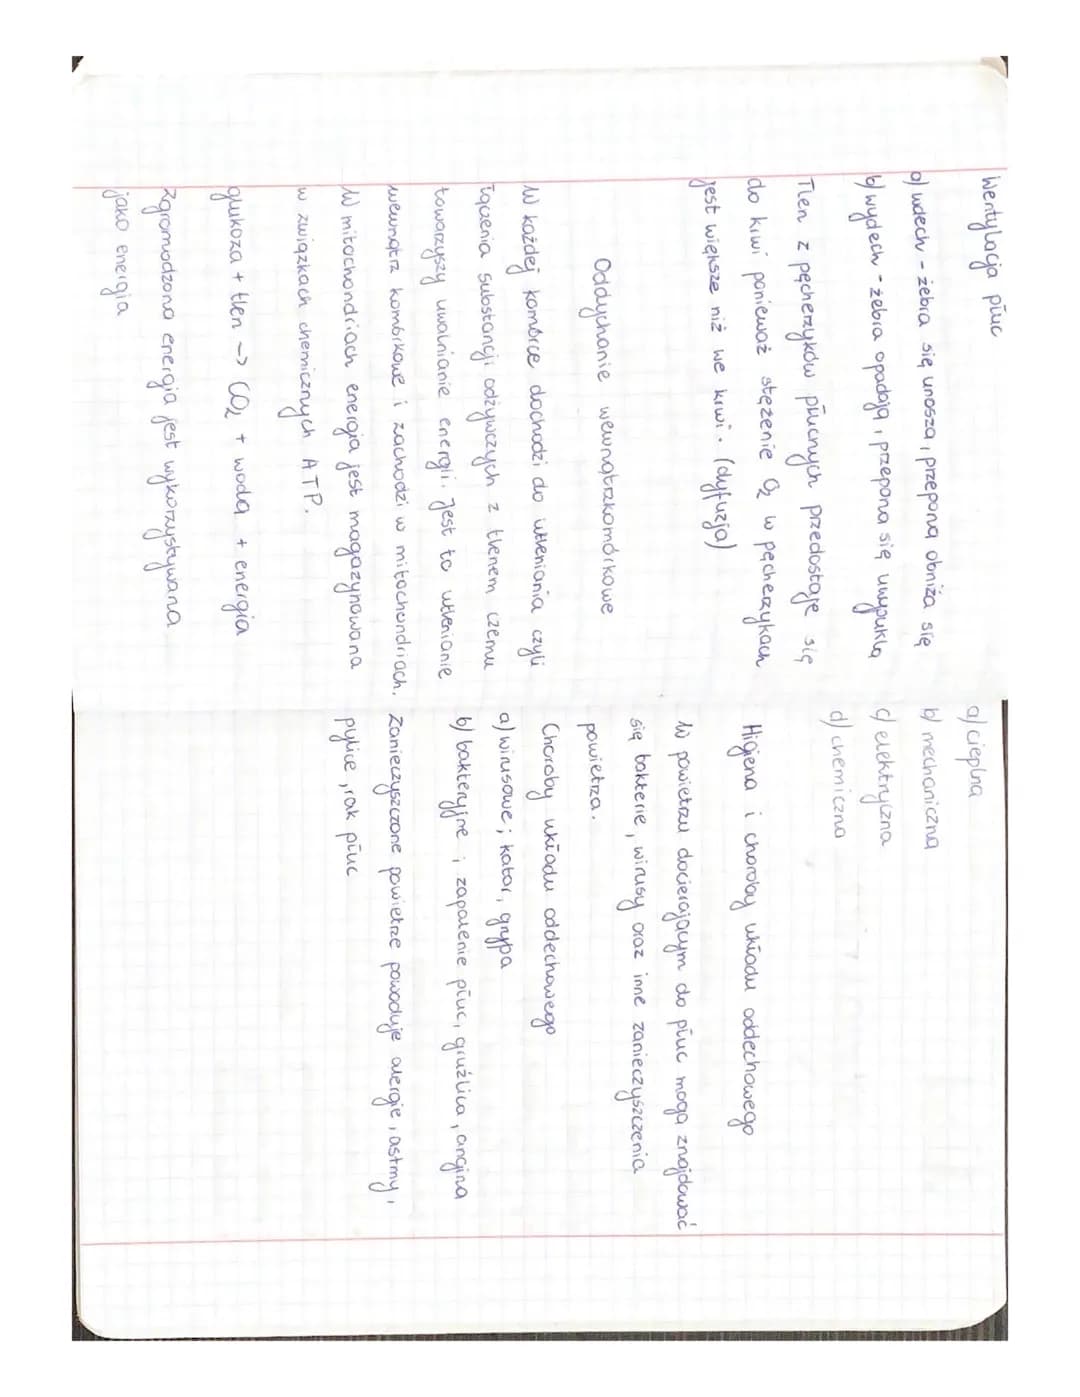 Wentylacja płuc
a) wdech - żebra się unoszą, przepona obniża się
b) wydech - żebra opadają, przepona się uwypukla
Tlen z pęcherzyków płucnych przedostaje się
do krwi ponieważ stężenie O₂ w pęcherzykach
jest większe niż we krwi. (dyfuzja)
Oddychanie wewnątrzkomórkowe
W każdej komórce dochodzi do utleniania czyli
łączenia substancji odżywczych z tlenem czemu
towarzyszy uwalnianie energii. Jest to utlenianie
wewnątrz komórkowe i zachodzi w mitochondriach.
W mitochondriach energia jest magazynowana
w związkach chemicznych ATP.
glukoza + tlen -> CO₂ + woda + energia
Zgromadzona energia jest wykorzystywana
jako energia
a) cieplna
b) mechaniczna
c) elektryczna
d) chemiczna
Higiena i choroby układu oddechowego
W powietrzu docierającym do płuc mogą znajdować
się bakterie, wirusy oraz inne zanieczyszczenia
powietrza.
Choroby układu oddechowego
a) wirusowe; katar, grypa
b) bakteryjne; zapalenie płuc, gruźlica, angina
Zanieczyszczone powietrze powoduje alergie, astmy,
pylice, rak płuc